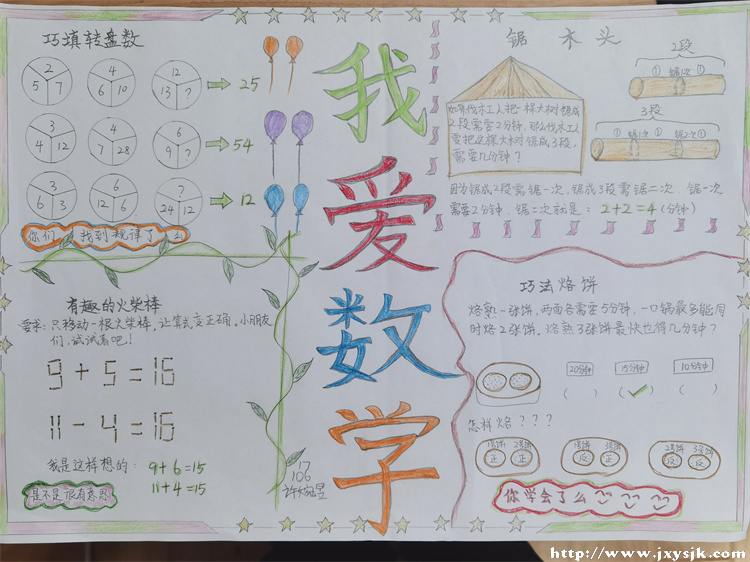 巧填转盘数
2
5 7
4
6 10
12
13 ?
25
3
4 12
4
7 28
6
9 ?
54
3
6 3
6
12 6
?
24 12
12
你们找到规律了么
有趣的火柴棒
要求:只移动一根火柴棒,让算式变正确。小朋友
们,试试看吧!
9+5=16
11-4=16
我是这样想的:
9+6=15
11+4=15
是不是很有意思
我爱数学
17
106
锯木头
如果伐木工人把一棵大树锯成
2段需要2分钟,那么伐木工人
要把这棵大树锯成3段,
需要几分钟?
2段
① 锯1次 ①
3段
① 锯1次 ① 锯2次 ①
因为锯成2段需锯一次,锯成3段需锯二次,锯一次
需要2分钟,锯二次就是:2+2=4(分钟)
巧法烙饼
烙熟一张饼,两面各需要5分钟,一口锅最多能同
时烙2张饼。烙熟3张饼最快也得几分钟?
20分钟 15分钟 10分钟
( ) (✓) ( )
怎样烙???
1号饼 2号饼
正 正
2号饼 3号饼
反 反
你学会了么
http://www.jxysjk.com